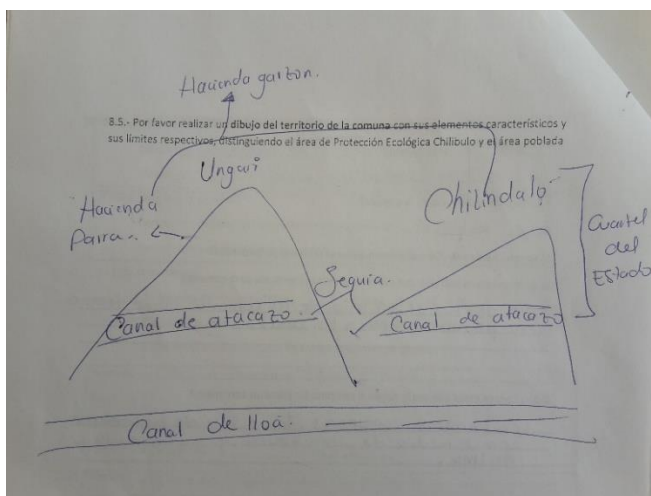 Hacienda garzon.
8.5.- Por favor realizar un dibujo del territorio de la comuna con sus elementos característicos y
sus límites respectivos, distinguiendo el área de Protección Ecológica Chilibulo y el área poblada
Ungui
Chilindalo
Hacienda
Parra.
Cuartel
del
Estado
Sequia.
Canal de atacazo.
Canal de atacazo
Canal de lloa.